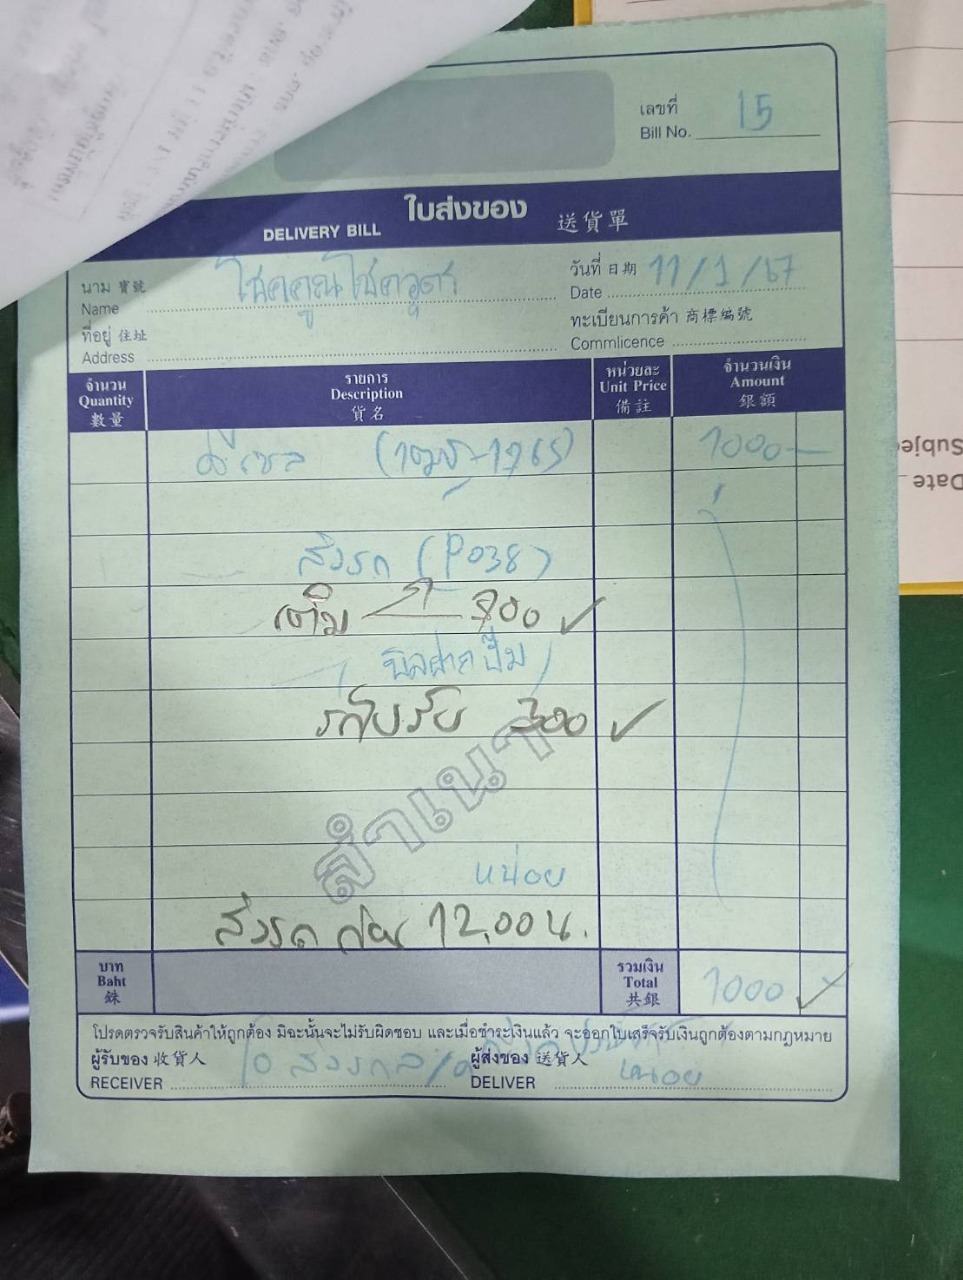 เลขที่
Bill No. 15
ใบส่งของ
DELIVERY BILL 送貨單
นาม 寶號
Name โชคคูณโชควุฒา
วันที่ 日期 11/1/67
Date
ที่อยู่ 住址
Address
ทะเบียนการค้า 商標編號
Commlicence
จำนวน
Quantity
數量
รายการ
Description
貨名
หน่วยละ
Unit Price
備註
จำนวนเงิน
Amount
銀額
ดีเซล 1000-
สิงรถ (P038)
เติม 700 ✓
(บิลฝากปั๊ม)
รถไปรับ 300 ✓
สำเนา
หน่อย
สิงรถ ก่อน 12.00 น.
บาท
Baht
銖
รวมเงิน
Total
共銀
1000 ✓
โปรดตรวจรับสินค้าให้ถูกต้อง มิฉะนั้นจะไม่รับผิดชอบ และเมื่อชำระเงินแล้ว จะออกใบเสร็จรับเงินถูกต้องตามกฎหมาย
ผู้รับของ 收貨人
RECEIVER
ผู้ส่งของ 送貨人
DELIVER หน่อย
Subject
Date